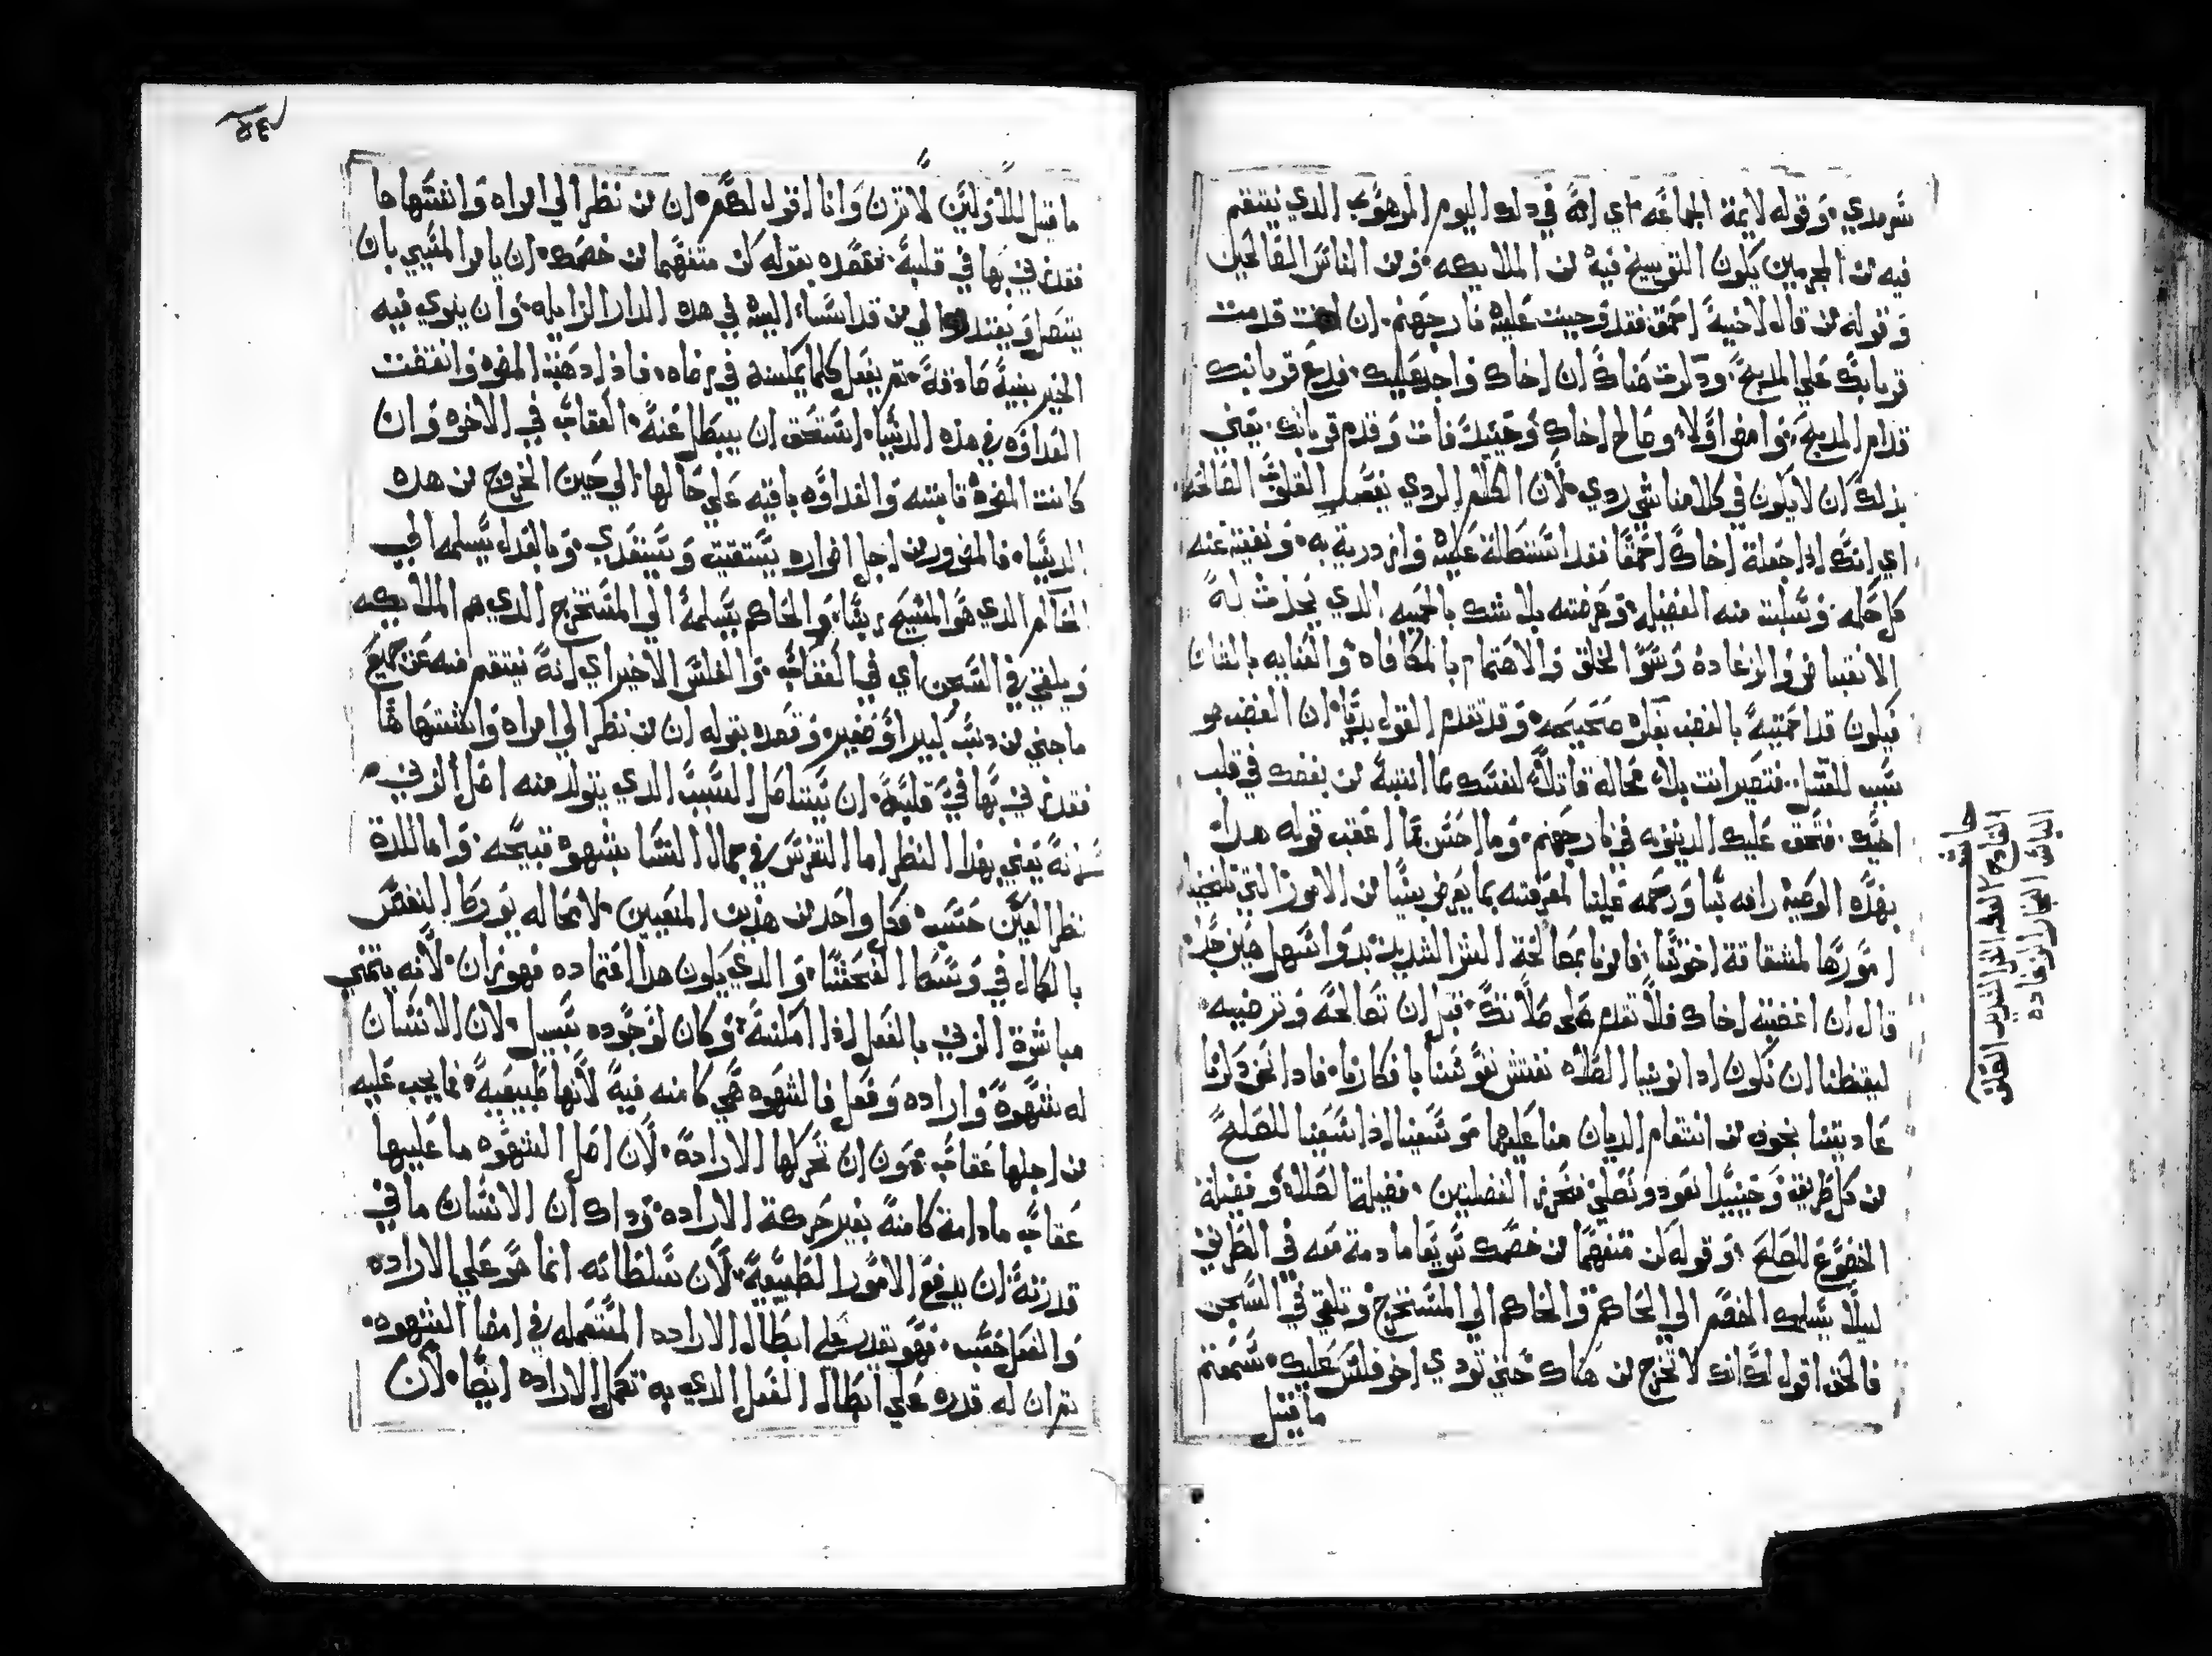 سرمدي وقوله لايمة الجماعه اي انه في دلك اليوم المرهوب الدي ينتقم
فيه من المجرمين يكون التوبيخ فيه من الملايكه ومن الناس الصالحين
وقوله من قال لاخيه احمق فقد وجبت عليه نار جهنم ان انت قدمت
قربانك علي المدبح ودكرت هناك ان اخاك واجد عليك فدع قربانك
قدام المدبح وامض اولا وصالح اخاك وحينيد فات وقدم قربانك يعني
بدلك ان لا يكون في كلامنا شي ردي لان الكلام الردي القلوب الصالحه
اي انك ادا جعلة اخاك احمقا فقد عليه وازدرية به ونفيت عنه
كل حلمه وسلبت منه الفضيله وعرضته بلا شك بالحميه الدي يحدث له
الانقباض والزغاده وسو الخلق والاهتمام بالمكافاه والعنايه بالقتال
فيكون قد احميته بالغضب بعله صحيحه وقد تقدم القول بديا ان الغضب هو
سبب للقتل فتصير انت بلا محاله قاتلا لنفسك بما اتيته من بغضك في قلب
اخيك فتحق عليك الدينونه في نار جهنم وما احسن ما اعقب قوله هدا
بهده الوصيه رافه بنا ورحمه علينا لمعرفته بما يعرض بيننا من الامور التي
امورها لمشقاقة اخوتنا فامرنا بمصالحة الشر الشديد بدوا سهل هين جدا
قال ان اغضبته اخاك فلا تقدم علي صلاتك قبل ان تصالحه وترضيه
ليقظنا ان نكون ادا نوينا الصلاه نفتش نفوسنا بافكارنا فادا نحن دكرنا
عاديتنا نجوه من انتقام الديان منا عليها هو سعينا ادا سعينا للصلح
من كل طريق وحينيد نعود ونصلي فنحرز الفضلتين فضيلة الصلاه وفضيلة
الخضوع للصلح وقوله كن متفهما من خصمك سريعا ما دمة معه في الطريق
ليلا يسلمك الخصم الي الحاكم والحاكم الي المستخرج وتلقي في السجن
فالحق اقول لك انك لا تخرج من هناك حتي تودي اخر فلس عليك سمعتم
ما قيل
حاشيه
القادح العله الشر الشديد القلق
الباش الجبار الزغاده
ما قيل للاولين لا تزن وانا اقول لكم ان من نظر الي امراه واشتهاها
فقد زني بها في قلبه فقصده بقوله كن متفهما من خصمك ان يامر المسي بان
يتنصل ويعتدر الي من قد اسا اليه في هده الدار الزايله وان ينوي فيه
الخير بنية صادقة ثم يفعل كلما يمكنه في رضاه فادا دهبة المضره وانقضت
العداوه في هده الدنيا استحق ان يبطل عنه العقاب في الاخره وان
كانت المضره تابته والعداوه باقيه علي حالها الي حين الخروج من هده
الدنيا فالمضرور من اجل اضراره يستغيت ويستعدي وبالعدل يسلمه الي
الحاكم الدي هو المسيح ربنا والحاكم يسلمه الي المستخرج الدي هم الملايكه
ويلقي في السجن اي في العقاب والفلس الاخير اي انه ينتقم منه عن جميع
ما جني من دنب كبير او صغير وقصده بقوله ان من نظر الي امراه واشتهاها
فقد زني بها في قلبه ان يستاصل السبب الدي يتولد منه اصل الزني
لانه يعني بهدا النظر اما التفرس في جمال النسا بشهوه قبيحه واما للدة
نظر العين حسب فكل واحد من هدين المعنيين لا محاله يورط البعض
بالكمال في وسط الفحشا والدي يكون هدا اعتماده فهو زان لانه يتمني
مباشرة الزني بالفعل ادا امكنه وكان لوجوده سبيل لان الانسان
له شهوه واراده وفعل فالشهوه هي كامنه فيه لانها طبيعيه فما يجب عليه
من اجلها عقاب دون ان تحركها الارادة لان اصل الشهوه ما عليها
عقاب ما دامة كامنه بغير حركة الاراده وداك ان الانسان ما في
قدرته ان يدفع الامور الطبيعيه لان سلطانه انما هو علي الاراده
والفعل حسب فهو يقدر علي ابطال الاراده المستعمله في امضا الشهوه
ثم ان له قدره علي ابطال الفعل الدي به تكمل الاراده ايضا لان